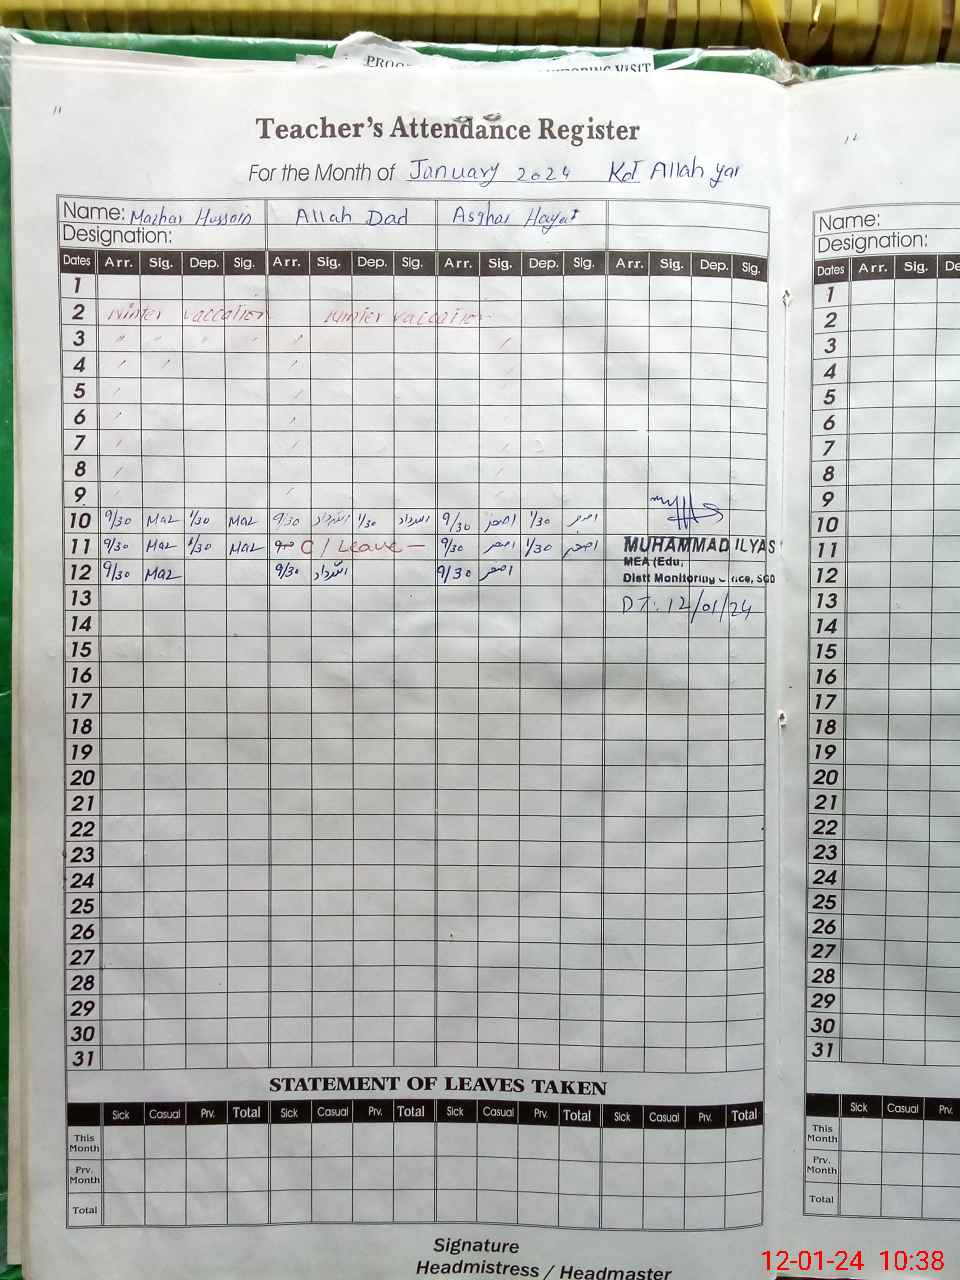 PROG MONITORING VISIT
11
Teacher's Attendance Register
For the Month of January 2024 Kot Allah yar
Name: Mazhar Hussain Allah Dad Asghar Hayat
Designation:
Dates Arr. Sig. Dep. Sig. Arr. Sig. Dep. Sig. Arr. Sig. Dep. Sig. Arr. Sig. Dep. Sig.
1
2 Winter vaccation Winter vaccation
3 " " " " "
4
5
6
7
8
9
10 9/30 Maz 1/30 Maz 9/30 اللہ داد 1/30 اللہ داد 9/30 اصغر 1/30 اصغر
11 9/30 Maz 1/30 Maz C/Leave — 9/30 اصغر 1/30 اصغر MUHAMMAD ILYAS
MEA (Edu,
12 9/30 Maz 9/30 اللہ داد 9/30 اصغر Distt Monitoring Office, SGD
13 DT: 12/01/24
14
15
16
17
18
19
20
21
22
23
24
25
26
27
28
29
30
31
STATEMENT OF LEAVES TAKEN
Sick Casual Prv. Total Sick Casual Prv. Total Sick Casual Prv. Total Sick Casual Prv. Total
This Month
Prv. Month
Total
Signature
Headmistress / Headmaster
12
Name:
Designation:
Dates Arr. Sig. De
1
2
3
4
5
6
7
8
9
10
11
12
13
14
15
16
17
18
19
20
21
22
23
24
25
26
27
28
29
30
31
Sick Casual Prv.
This Month
Prv. Month
Total
12-01-24 10:38